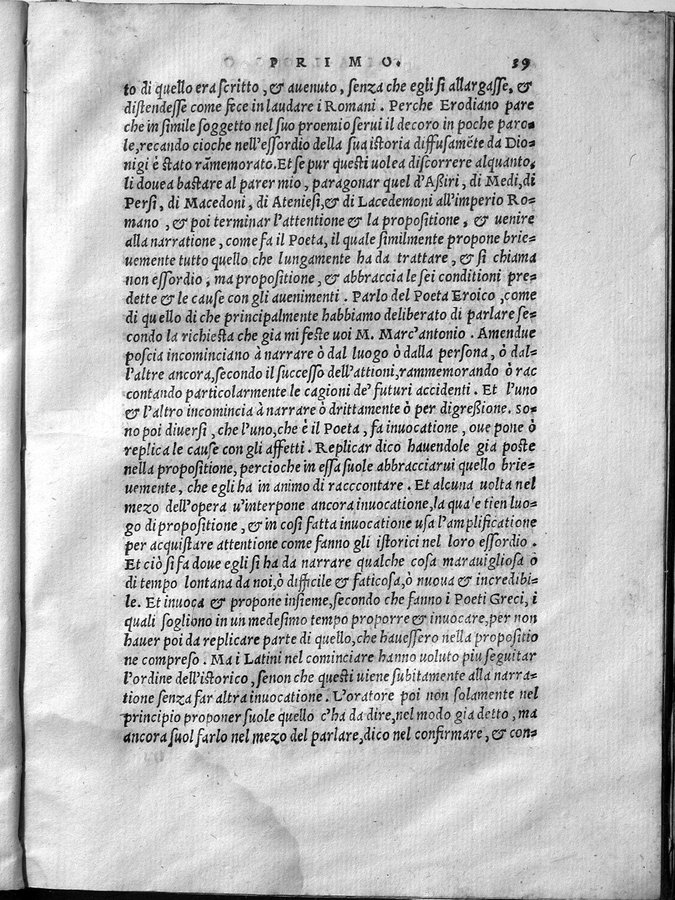 PRIMO. 39
to di quello era scritto, & auenuto, senza che egli si allargasse, &
distendesse come fece in laudare i Romani. Perche Erodiano pare
che in simile soggetto nel suo proemio serui il decoro in poche paro-
le, recando cioche nell'essordio della sua istoria diffusamẽte da Dio-
nigi è stato rãmemorato. Et se pur questi uolea discorrere alquanto,
li douea bastare al parer mio, paragonar quel d'Aßiri, di Medi, di
Persi, di Macedoni, di Ateniesi, & di Lacedemoni all'imperio Ro-
mano, & poi terminar l'attentione & la propositione, & uenire
alla narratione, come fa il Poeta, il quale similmente propone brie-
uemente tutto quello che lungamente ha da trattare, & si chiama
non essordio, ma propositione, & abbraccia le sei conditioni pre-
dette & le cause con gli auenimenti. Parlo del Poeta Eroico, come
di quello di che principalmente habbiamo deliberato di parlare se-
condo la richiesta che gia mi feste uoi M. Marc'antonio. Amendue
poscia incominciano à narrare ò dal luogo ò dalla persona, ò dal-
l'altre ancora, secondo il successo dell'attioni, rammemorando ò rac
contando particolarmente le cagioni de' futuri accidenti. Et l'uno
& l'altro incomincia à narrare ò drittamente ò per digreßione. So-
no poi diuersi, che l'uno, che è il Poeta, fa inuocatione, oue pone ò
replica le cause con gli affetti. Replicar dico hauendole gia poste
nella propositione, percioche in essa suole abbracciarui quello brie-
uemente, che egli ha in animo di racccontare. Et alcuna uolta nel
mezo dell'opera u'interpone ancora inuocatione, la qua'e tien luo-
go di propositione, & in così fatta inuocatione usa l'amplificatione
per acquistare attentione come fanno gli istorici nel loro essordio.
Et ciò si fa doue egli si ha da narrare qualche cosa marauigliosa ò
di tempo lontana da noi, ò difficile & faticosa, ò nuoua & incredibi-
le. Et inuoca & propone insieme, secondo che fanno i Poeti Greci, i
quali sogliono in un medesimo tempo proporre & inuocare, per non
hauer poi da replicare parte di quello, che hauessero nella propositio
ne compreso. Ma i Latini nel cominciare hanno uoluto piu seguitar
l'ordine dell'istorico, senon che questi uiene subitamente alla narra-
tione senza far altra inuocatione. L'oratore poi non solamente nel
principio proponer suole quello c'ha da dire, nel modo gia detto, ma
ancora suol farlo nel mezo del parlare, dico nel confirmare, & con-